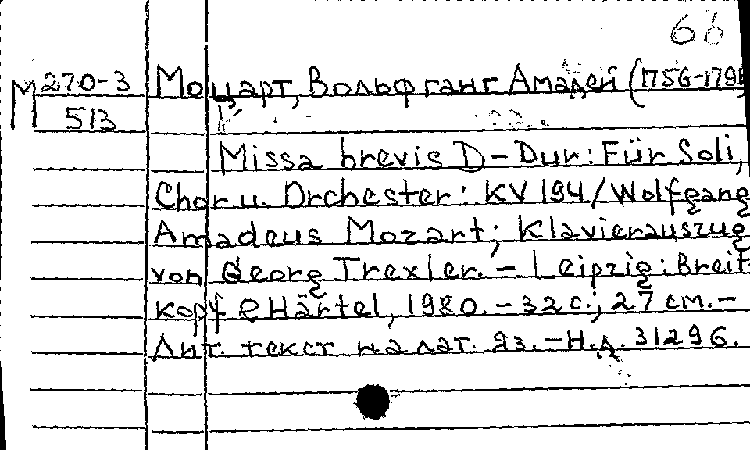 66
М 270-3 Моцарт, Вольфганг Амадей (1756-1791
513
Missa brevis D-Dur: Für Soli,
Chor u. Orchester: KV 194/Wolfgang
Amadeus Mozart; Klavierauszug
von Georg Trexler. - Leipzig: Breit-
kopf & Härtel, 1980. - 32 с.; 27 см. -
Лит. текст на лат. яз. - Н.д. 31296.